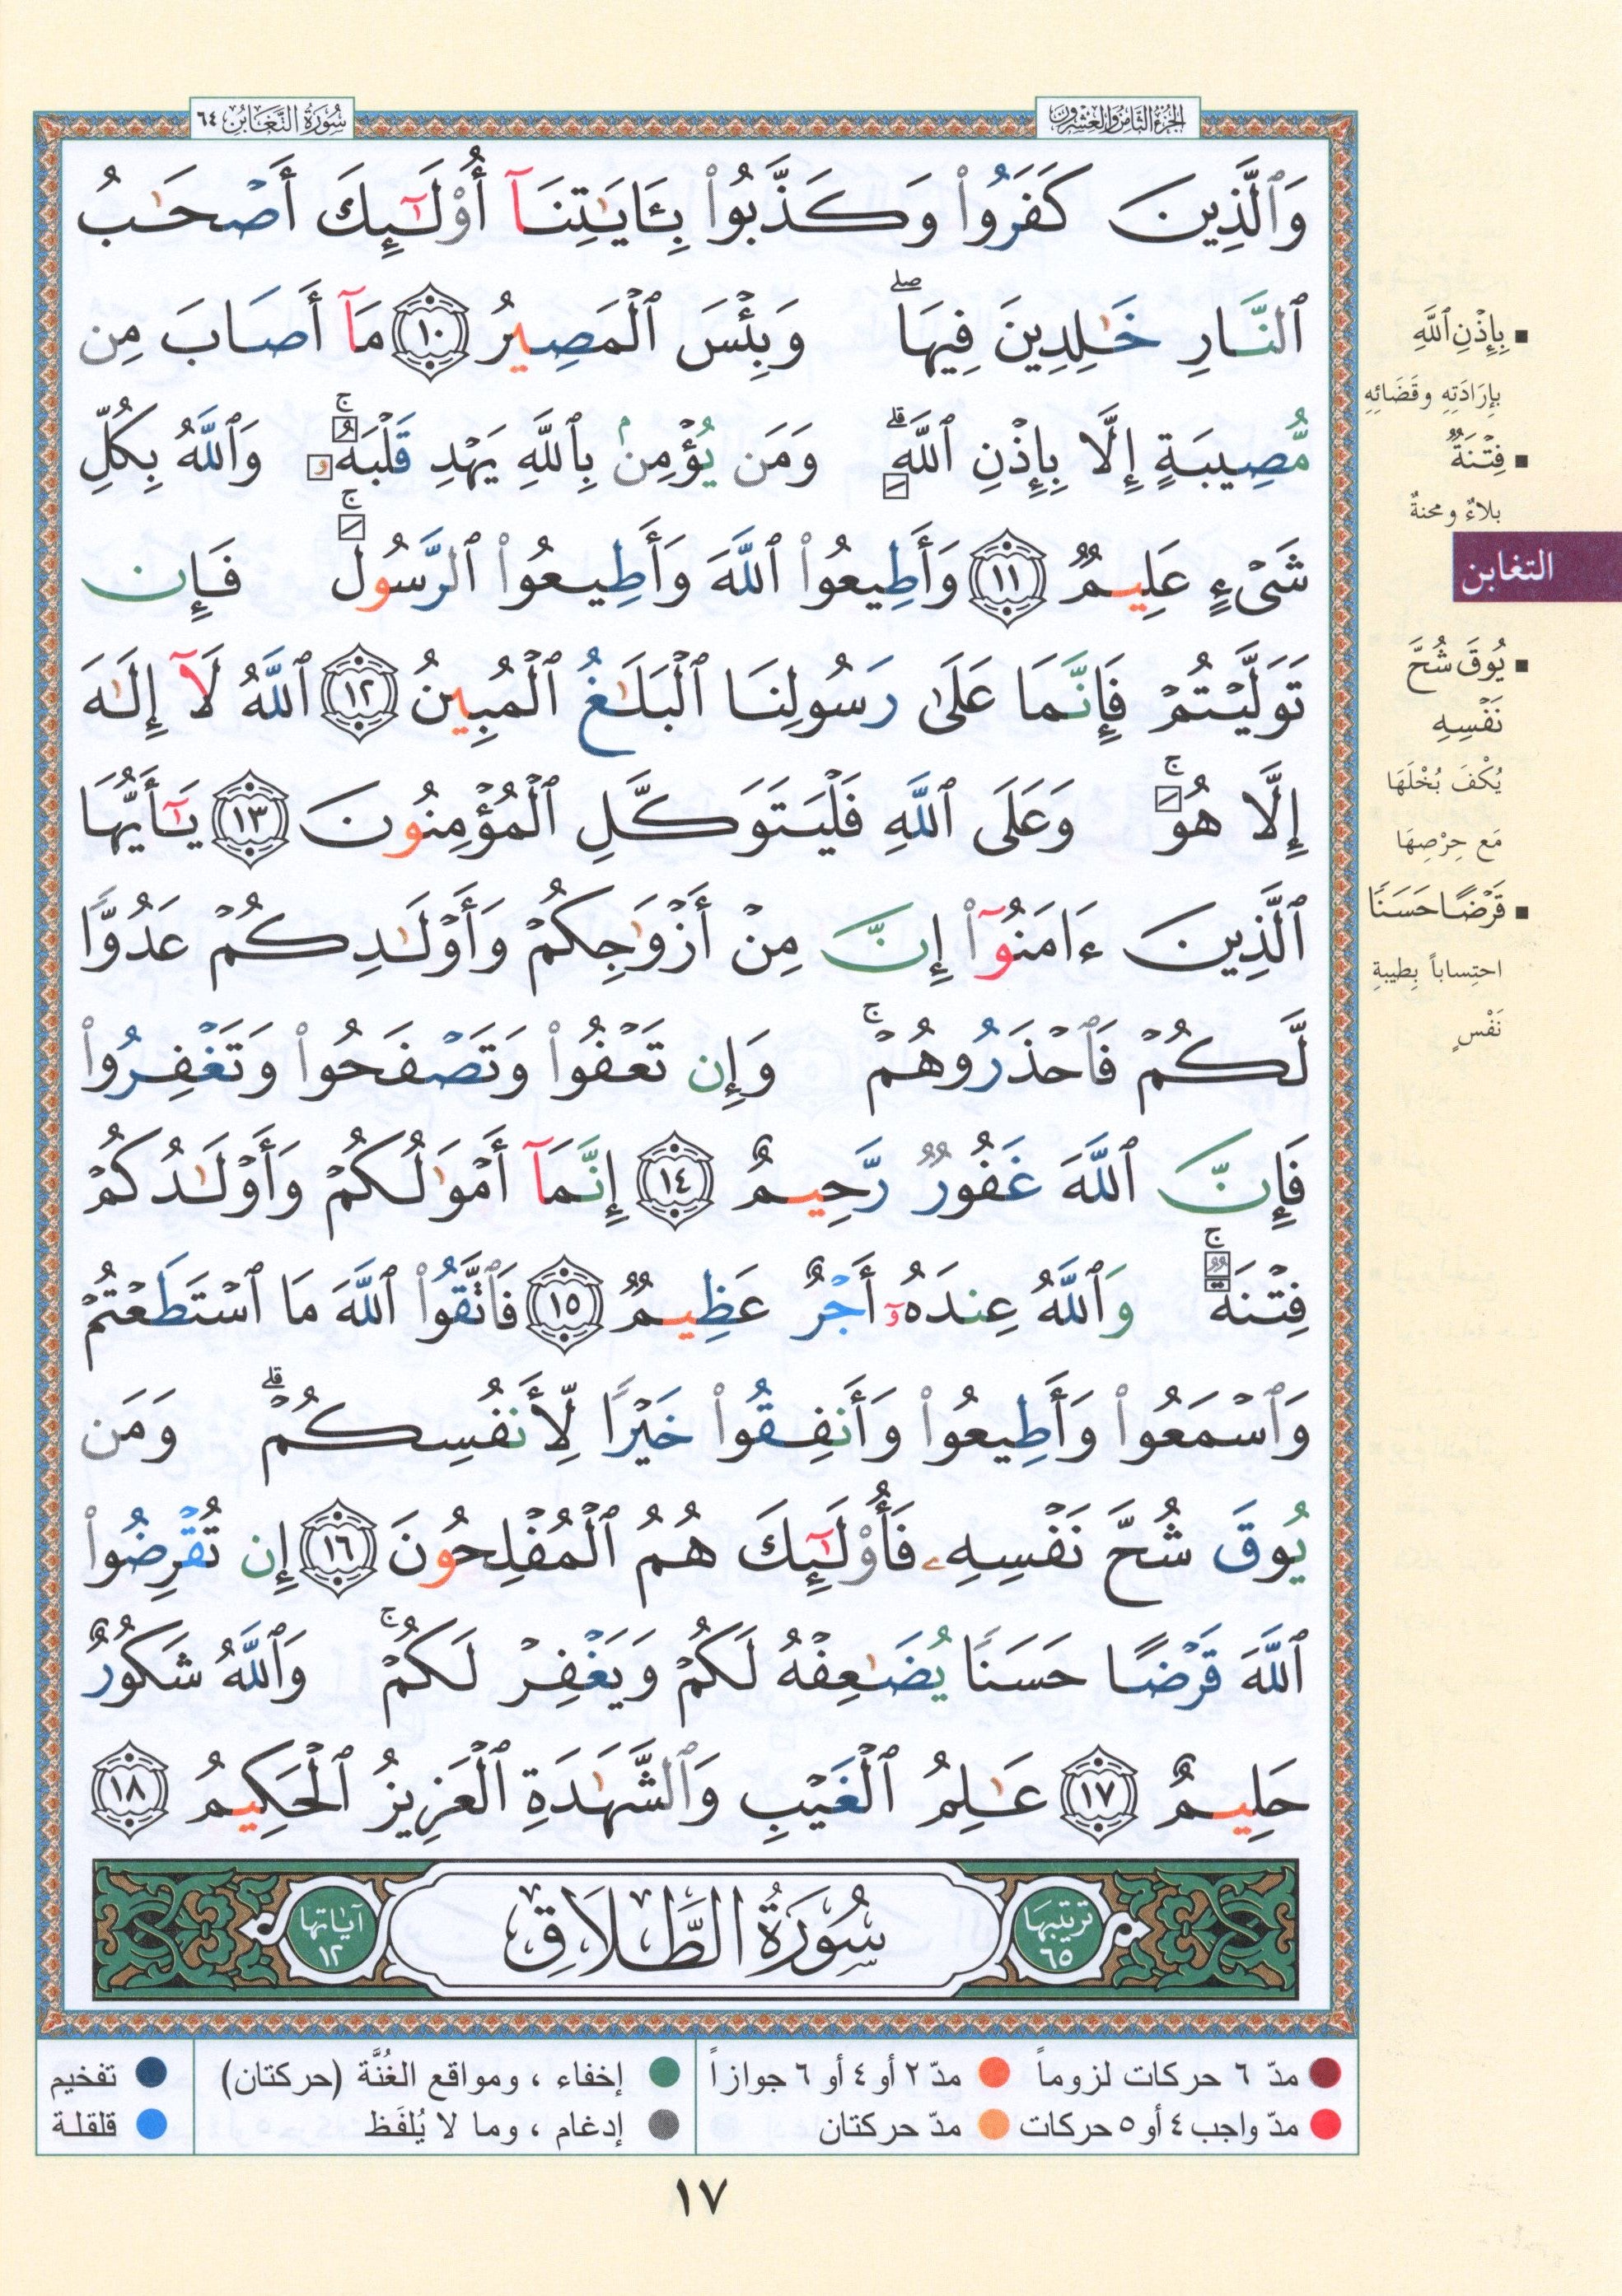 الجزء الثامن والعشرون
سورة التغابن ٦٤
وَٱلَّذِينَ كَفَرُوا۟ وَكَذَّبُوا۟ بِـَٔايَـٰتِنَآ أُو۟لَـٰٓئِكَ أَصْحَـٰبُ
ٱلنَّارِ خَـٰلِدِينَ فِيهَا ۖ وَبِئْسَ ٱلْمَصِيرُ ١٠ مَآ أَصَابَ مِن
مُّصِيبَةٍ إِلَّا بِإِذْنِ ٱللَّهِ ۗ وَمَن يُؤْمِنۢ بِٱللَّهِ يَهْدِ قَلْبَهُۥ ۚ وَٱللَّهُ بِكُلِّ
شَىْءٍ عَلِيمٌ ١١ وَأَطِيعُوا۟ ٱللَّهَ وَأَطِيعُوا۟ ٱلرَّسُولَ ۚ فَإِن
تَوَلَّيْتُمْ فَإِنَّمَا عَلَىٰ رَسُولِنَا ٱلْبَلَـٰغُ ٱلْمُبِينُ ١٢ ٱللَّهُ لَآ إِلَـٰهَ
إِلَّا هُوَ ۚ وَعَلَى ٱللَّهِ فَلْيَتَوَكَّلِ ٱلْمُؤْمِنُونَ ١٣ يَـٰٓأَيُّهَا
ٱلَّذِينَ ءَامَنُوٓا۟ إِنَّ مِنْ أَزْوَٰجِكُمْ وَأَوْلَـٰدِكُمْ عَدُوًّا
لَّكُمْ فَٱحْذَرُوهُمْ ۚ وَإِن تَعْفُوا۟ وَتَصْفَحُوا۟ وَتَغْفِرُوا۟
فَإِنَّ ٱللَّهَ غَفُورٌ رَّحِيمٌ ١٤ إِنَّمَآ أَمْوَٰلُكُمْ وَأَوْلَـٰدُكُمْ
فِتْنَةٌ ۚ وَٱللَّهُ عِندَهُۥٓ أَجْرٌ عَظِيمٌ ١٥ فَٱتَّقُوا۟ ٱللَّهَ مَا ٱسْتَطَعْتُمْ
وَٱسْمَعُوا۟ وَأَطِيعُوا۟ وَأَنفِقُوا۟ خَيْرًا لِّأَنفُسِكُمْ ۗ وَمَن
يُوقَ شُحَّ نَفْسِهِۦ فَأُو۟لَـٰٓئِكَ هُمُ ٱلْمُفْلِحُونَ ١٦ إِن تُقْرِضُوا۟
ٱللَّهَ قَرْضًا حَسَنًا يُضَـٰعِفْهُ لَكُمْ وَيَغْفِرْ لَكُمْ ۚ وَٱللَّهُ شَكُورٌ
حَلِيمٌ ١٧ عَـٰلِمُ ٱلْغَيْبِ وَٱلشَّهَـٰدَةِ ٱلْعَزِيزُ ٱلْحَكِيمُ ١٨
ترتيبها ٦٥
سُورَةُ الطَّلَاقِ
آياتها ١٢
بِإِذْنِ ٱللَّهِ
بإِرَادَتِهِ وقَضَائِهِ
فِتْنَةٌ
بلاءٌ ومحنةٌ
التغابن
يُوقَ شُحَّ
نَفْسِهِ
يُكْفَ بُخْلَهَا
مَع حِرْصِهَا
قَرْضًا حَسَنًا
احتِساباً بِطيبةِ
نَفْسٍ
مدّ ٦ حركات لزوماً مدّ ٢ أو ٤ أو ٦ جوازاً
مدّ واجب ٤ أو ٥ حركات مدّ حركتان
إخفاء ، ومواقع الغُنَّة (حركتان)
إدغام ، وما لا يُلفَظ
تفخيم
قلقلة
١٧